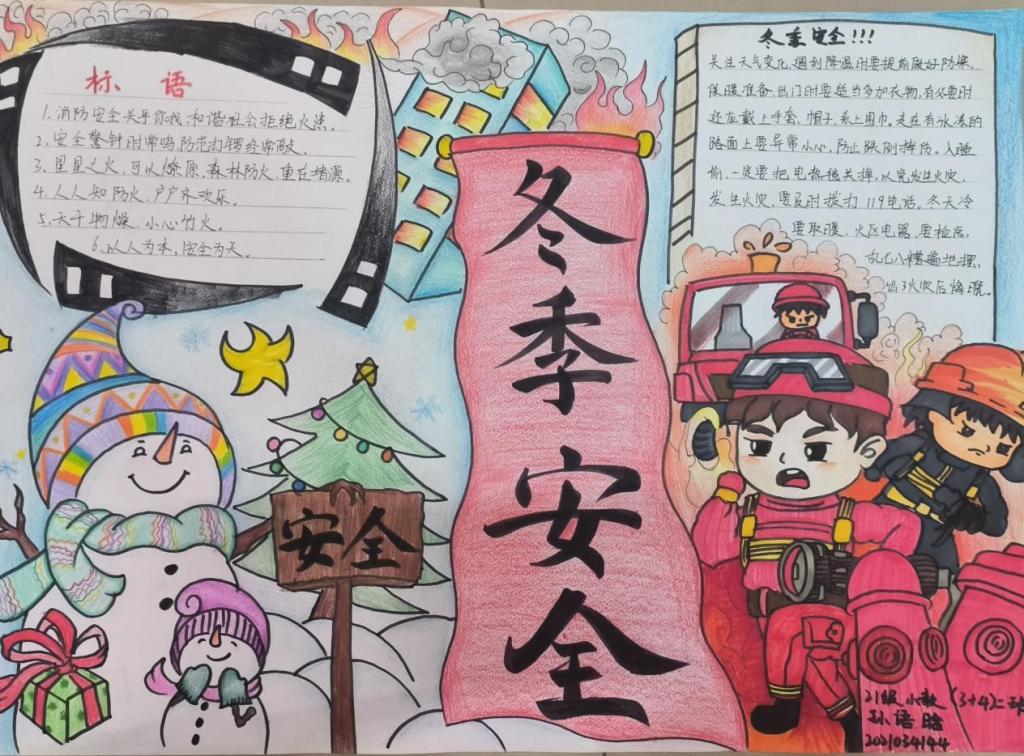 标语
1.消防安全关乎你我,和谐社会拒绝火患。
2.安全警钟时常鸣,防范打锣经常敲。
3.星星之火,可以燎原,森林防火,重在堵源。
4.人人知防火,户户齐欢乐。
5.天干物燥,小心竹火。
6.以人为本,安全为天。
冬季安全!!!
关注天气变化,遇到降温时要提前做好防寒、
保暖准备。出门时要适当多加衣物,有必要时
还应戴上手套、帽子、系上围巾。走在有冰冻的
路面上要异常小心,防止跌倒摔伤。入睡
前,一定要把电热毯关掉,以免发生火灾,
发生火灾,要及时拨打119电话。冬天冷
要取暖,火区电器,要检点,
乱七八糟遍地摆,
出了火灾后悔晚。
冬季安全
安全
21级小教(3+4)二班
孙语晗